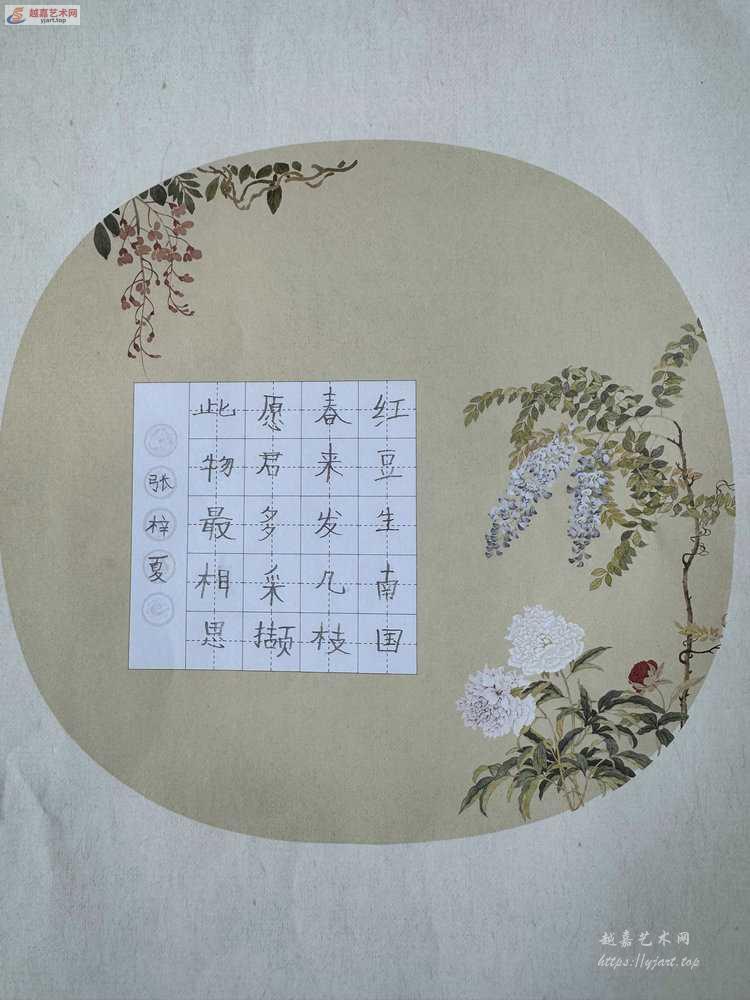 越嘉艺术网
yjart.top
红豆生南国
春来发几枝
愿君多采撷
此物最相思
张梓夏
越嘉艺术网
https://yjart.top